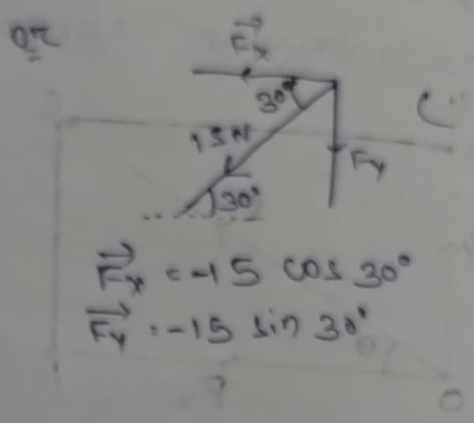 or
Fx
30°
15N
Fy
30°
Fx = -15 cos 30°
Fy = -15 sin 30°